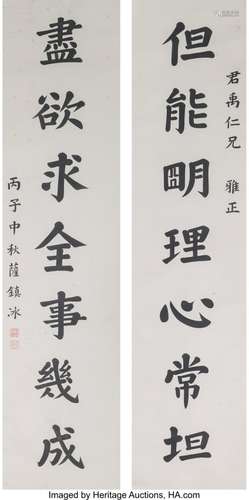 但能明理心常坦
君禹仁兄 雅正
盡欲求全事幾成
丙子中秋薩鎮冰
Imaged by Heritage Auctions, HA.com